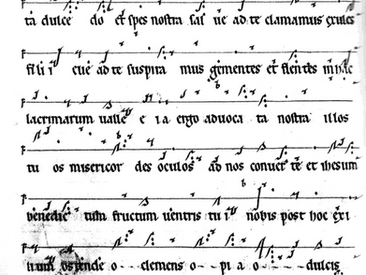 ta dulce do et spes nostra sal ue ad te clamamus exules
filii i eue ad te suspira mus gementes et flentes in hac
lacrimarum ualle e i a ergo aduoca ta nostra illos
tu os misericor des oculos ad nos conuer te et ihesum
benedic tum fructum uentris tu i nobis post hoc exi
lium ostende o clemens o pi a o dulcis